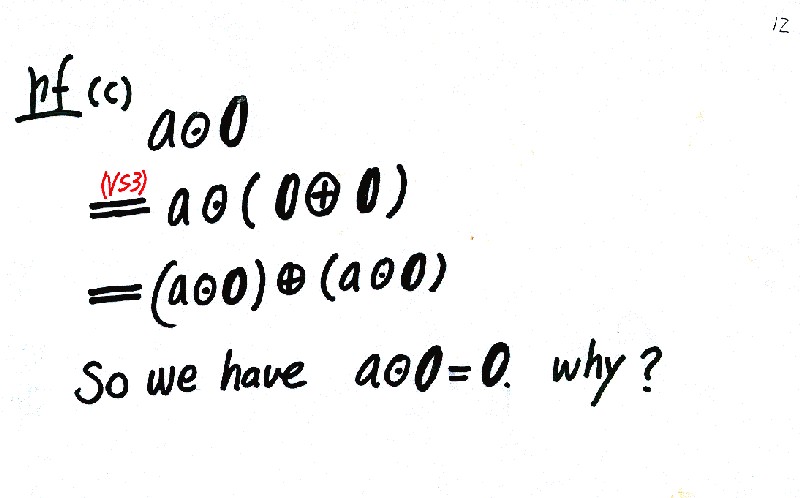 12
pf (c)
a⊙0
(VS3)
= a⊙(0⊕0)
= (a⊙0)⊕(a⊙0)
So we have a⊙0=0. why?